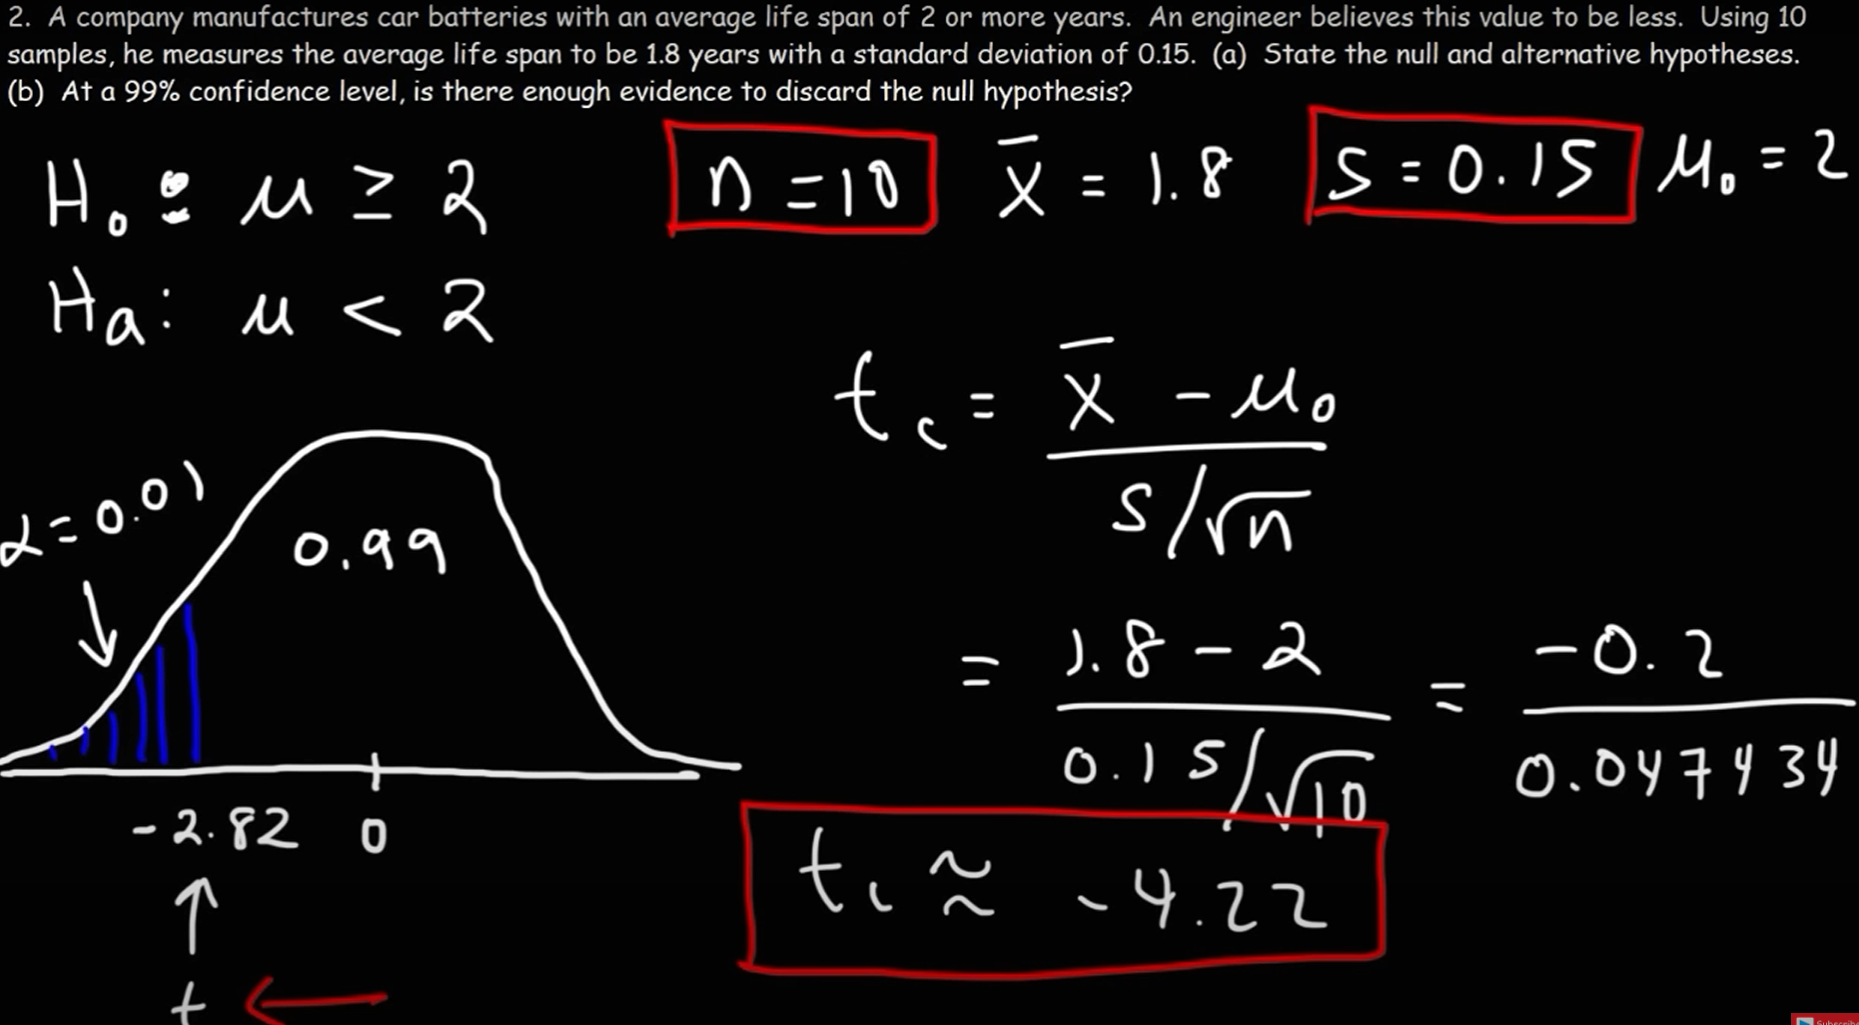 2. A company manufactures car batteries with an average life span of 2 or more years. An engineer believes this value to be less. Using 10
samples, he measures the average life span to be 1.8 years with a standard deviation of 0.15. (a) State the null and alternative hypotheses.
(b) At a 99% confidence level, is there enough evidence to discard the null hypothesis?
H₀: μ ≥ 2
n = 10
x̄ = 1.8
s = 0.15
μ₀ = 2
Ha: μ < 2
t_c = (x̄ - μ₀) / (s/√n)
= (1.8 - 2) / (0.15/√10) = -0.2 / 0.047434
t_c ≈ -4.22
α = 0.01
0.99
-2.82
0
t
Subscribe